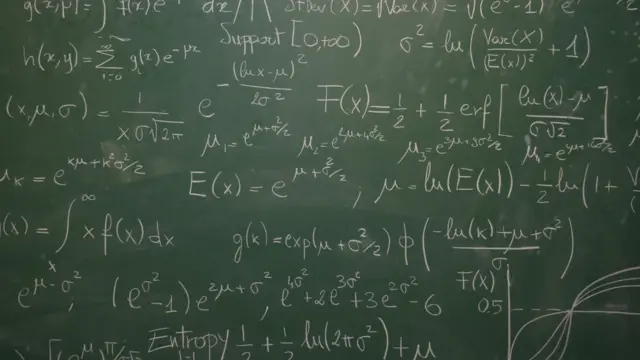 g(x,μ) = ∫ f(x)e dx / StDev(X) = √Var(X) = √(e -1) e
h(x,y) = ∑ i=0 ∞ g(x)e^-μx
Support [0,+∞)
σ² = ln(Var(X)/(E(x))² + 1)
(x,μ,σ) = 1/(xσ√2π) e^-(lnx-μ)²/2σ²
F(x) = 1/2 + 1/2 erf[(ln(x)-μ)/(σ√2)]
μ₁ = e^μ+σ²/2 μ₂ = e^2μ+4σ²/2 μ₃ = e^3μ+9σ²/2
μ_K = e^kμ+k²σ²/2
E(x) = e^μ+σ²/2 ; μ = ln(E(x)) - 1/2 ln(1 +
(x) = ∫ ∞ x f(x)dx
g(k) = exp(μ+σ²/2) ϕ((-ln(k)+μ+σ²)/σ)
e^μ-σ² , (e^σ²-1)e^2μ+σ² , e^4σ²+2e^3σ²+3e^2σ²-6
F(x)
0.5
Entropy 1/2 + 1/2 ln(2πσ²) + μ